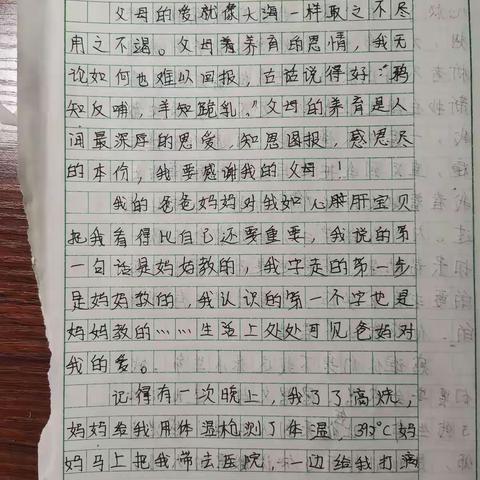 父母的爱就像大海一样取之不尽
用之不竭。父母养育的恩情，我无
论如何也难以回报，古话说得好："鸦
知反哺，羊知跪乳。"父母的养育是人
间最深厚的恩爱，知恩图报，感恩尽
的本份，我要感谢我的父母！
我的爸爸妈妈对我如心肝宝贝
把我看得比自己还要重要，我说的第
一句话是妈妈教的，我学走的第一步
是妈妈教的，我认识的第一个字也是
妈妈教的……生活上处处可见爸妈对
我的爱。
记得有一次晚上，我了了高烧，
妈妈给我用体温枪测了体温，39.2°C妈
妈马上把我带去医院，一边给我打滴